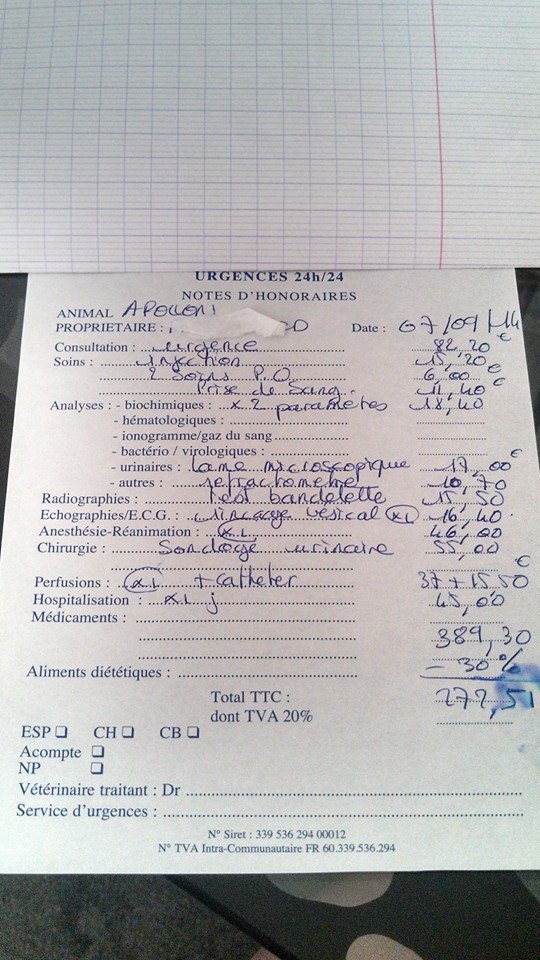 URGENCES 24h/24
NOTES D'HONORAIRES
ANIMAL APOLLON
PROPRIETAIRE : Date : 07/09/14
Consultation : urgence 82,20 €
Soins : injection 15,20
2 soins P.O 6,00 €
Prise de sang 11,40 €
Analyses : - biochimiques : x 2 paramètres 18,40
- hématologiques :
- ionogramme/gaz du sang
- bactério / virologiques :
- urinaires : lame microscopique 17,00 €
- autres : refractomètre 10,70
Radiographies : test bandelette 15,50
Echographies/E.C.G. : rincage vesical x1 16,40
Anesthésie-Réanimation : x1 46,00
Chirurgie : Sondage urinaire 55,00
Perfusions : x1 + catheter 37 + 15.50 €
Hospitalisation : x1 j 45,00
Médicaments :
389,30
- 30 %
Aliments diététiques :
Total TTC : 272,51
dont TVA 20%
ESP CH CB
Acompte
NP
Vétérinaire traitant : Dr
Service d'urgences :
N° Siret : 339 536 294 00012
N° TVA Intra-Communautaire FR 60.339.536.294